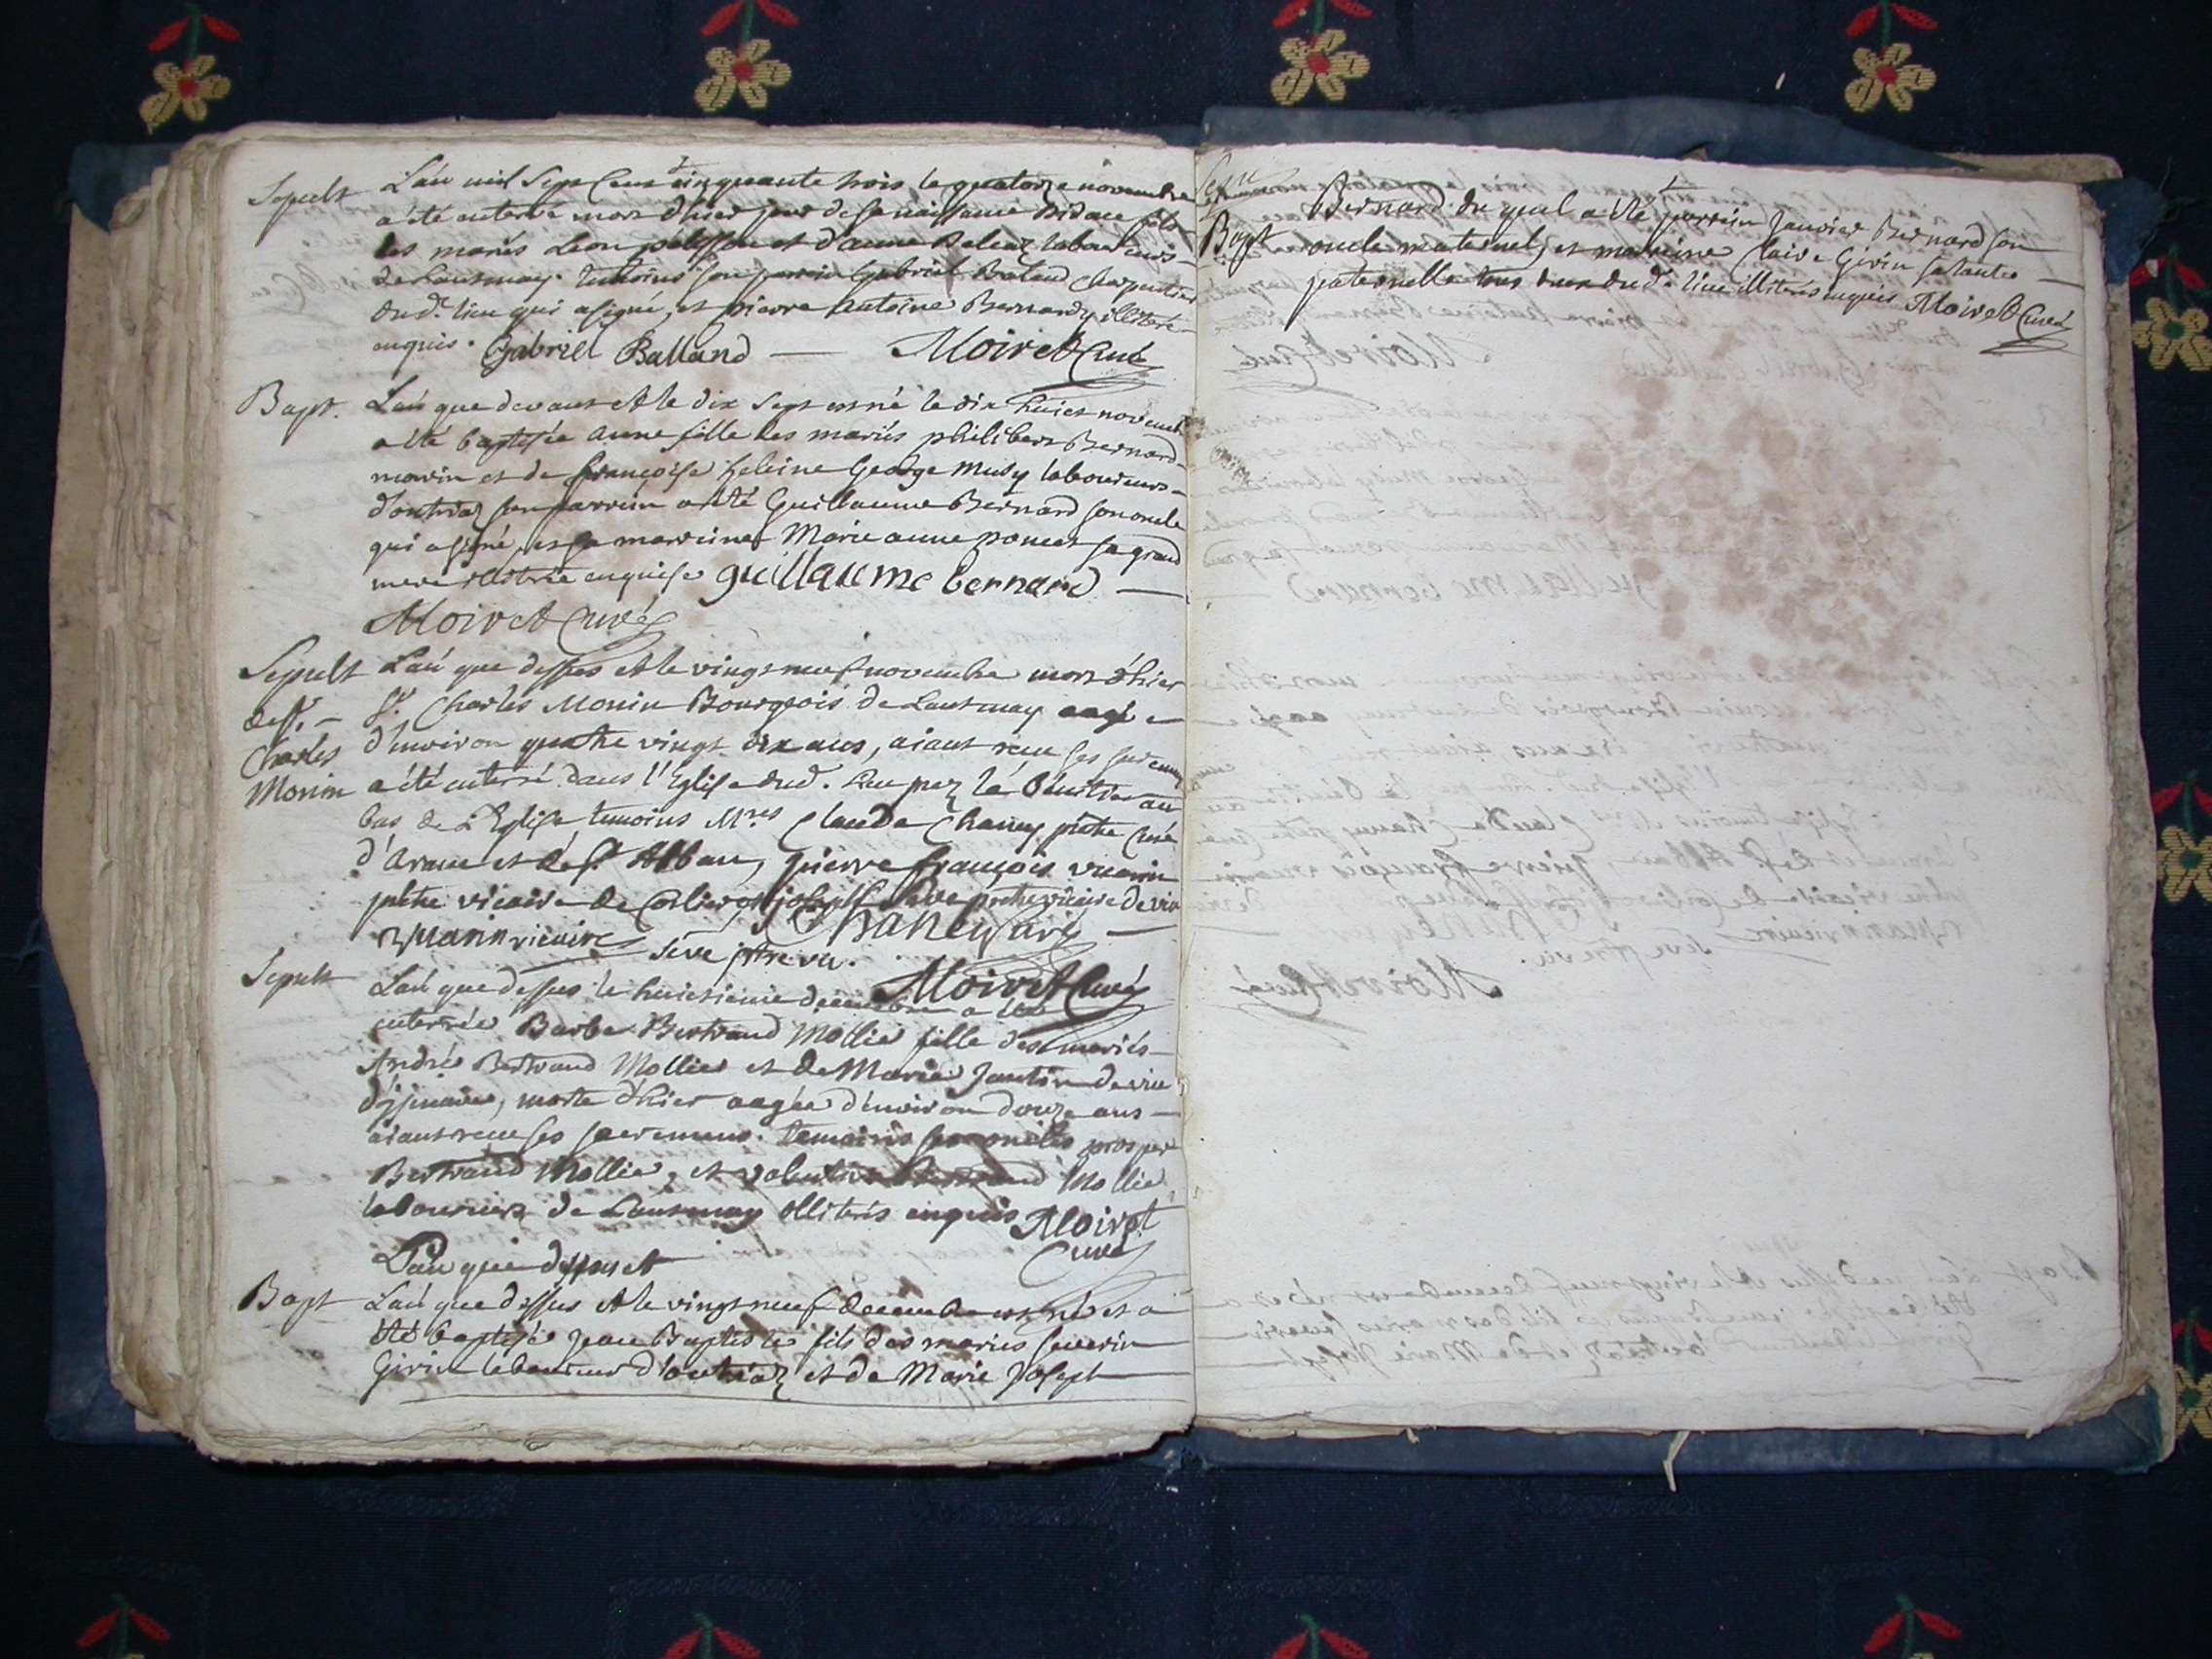 Sepult L'an mil Sept Cent cinquante trois le quatorze novembre
a été enterré mort d'hier jour de sa naissance fils
des mariés Leon et d'anne laboureurs
de Lantenay. temoins son parrein Gabriel Baland Charpentier
dud. lieu qui a signé, et pierre Antoine Bernard illiteré
enquis. Gabriel Balland — Moiret Curé
Bapt. L'an que devant et le dix Sept est né le dix huict novemb
a été baptisée anne fille des mariés philibert Bernard
morin et de françoise heleine George Musy laboureurs
d'outriaz son parrein a été Guillaume Bernard son oncle
qui a signé, et sa marreine Marie anne poncet sa grand
mere illitrée enquise guillaume bernard —
Moiret Curé
Sepult L'an que dessus et le vingt neuf novembre mort d'hier
deff. – Sr. Charles Monin Bourgeois de Lantenay aagé
Charles d'environ quatre vingt dix ans, aiant reçu ses sacremen
Monin a été enterré dans l'Eglise dud. Lieu prez le bénitier au
bas de L'Eglise temoins Mres Claude Chaney prêtre Curé
d' et de St. Alban, pierre françois vuarin
prêtre vicaire de Corlier, et joseph Seve prêtre vicaire de vieu
vuarin vicaire Chaney curé —
Seve ptre vic.
Moiret Curé
Sepult L'an que dessus le huictieme decembre a été
enterrée Barbe Bertrand Mollie fille des mariés
André Bertrand Mollie et de Marie Jantin de vieu
d'izenave, morte d'hier aagée d'environ douze ans —
aiant recue ses sacremens. temoins ses oncles prosper
Bertrand Mollie, et Bertrand Mollie
laboureurs de Lantenay illiterés enquis Moiret
Curé
L'an que dessus et
Bapt L'an que dessus et le vingt neuf decembre est né et a
été baptisé Jean Baptiste fils des mariés severin
Girin laboureur d'outriaz et de Marie Joseph
Sepu
Bapt Bernard du quel a été parrein Janvier Bernard son
oncle maternel, et marreine Claire Girin sa tante
paternelle tous deux dud. lieu illiterés enquis Moiret Curé